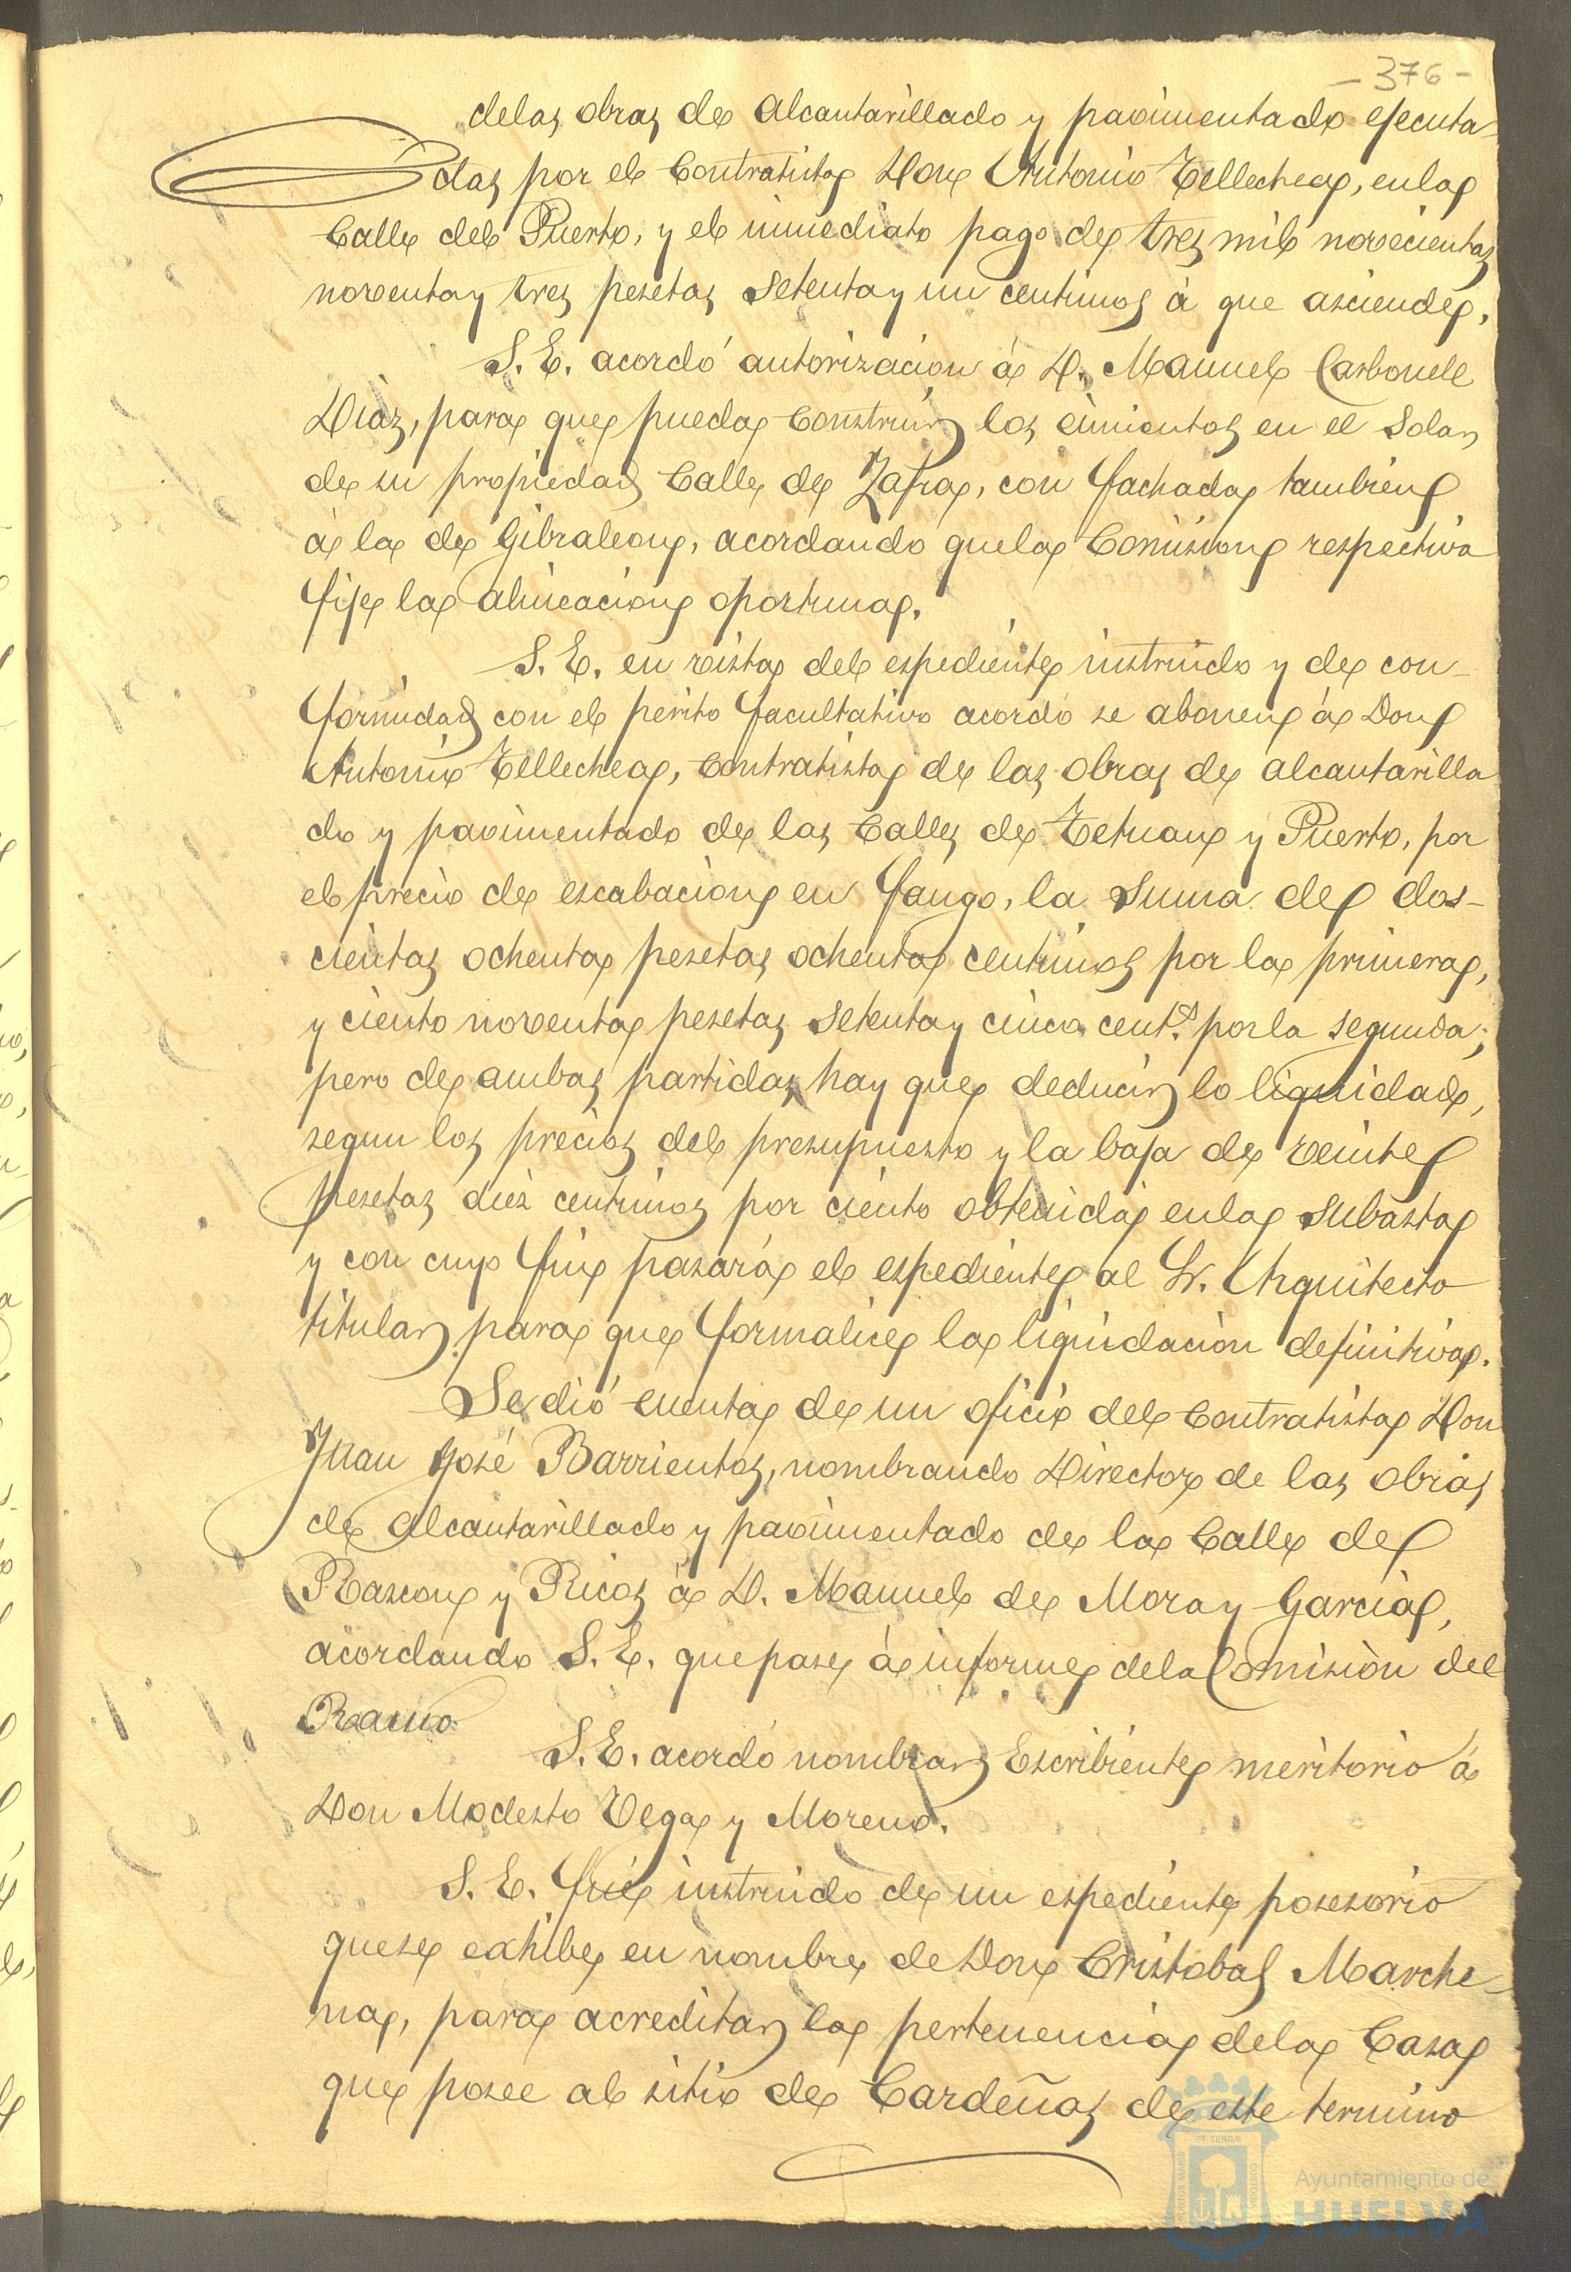 - 376 -
delas obras de Alcantarillado y pavimentado ejecuta-
das por el Contratista Don Antonio Tellechea, enla
Calle del Puerto, y el inmediato pago de tres mil novecientas
noventa y tres pesetas setenta y un centimos á que asciende,
S. E. acordó autorizacion á D. Manuel Carbonell
Diaz, para que pueda Construir los cimientos en el Solar
de su propiedad Calle de Zafra, con fachada tambien
á la de Gibraleon, acordando quela Comision respectiva
fije la alineacion oportuna.
S. E. en vista del espediente instruido y de con-
formidad con el perito facultativo acordó se abonen á Don
Antonio Tellechea, Contratista de las obras de alcantarilla
do y pavimentado de las Calles de Tetuan y Puerto, por
el precio de escabacion en fango, la Suma de dos-
cientas ochenta pesetas ochenta centimos por la primera,
y ciento noventa pesetas setenta y cinco cent.s por la segunda;
pero de ambas partidas hay que deducir lo liquidado,
segun los precios del presupuesto y la baja de veinte
pesetas diez centimos por ciento obtenida enla Subasta
y con cuyo fin pasará el espediente al Sr. Arquitecto
titular para que formalice la liquidacion definitiva.
Se dió cuenta de un oficio del Contratista Don
Juan José Barrientos, nombrando Director de las obras
de Alcantarillado y pavimentado de la Calle de
Rascon y Ricos á D. Manuel de Mora y Garcia,
acordando S. E. que pase á informe dela Comisiòn del
Ramo
S. E. acordó nombrar Escribiente meritorio á
Don Modesto Vega y Moreno.
S. E. fue instruido de un espediente posesorio
quese exhibe en nombre de Don Cristobal Marche-
na, para acreditar la pertenencia dela Casa
que posee al sitio de Cardeñas de este termino
Ayuntamiento de
HUELVA